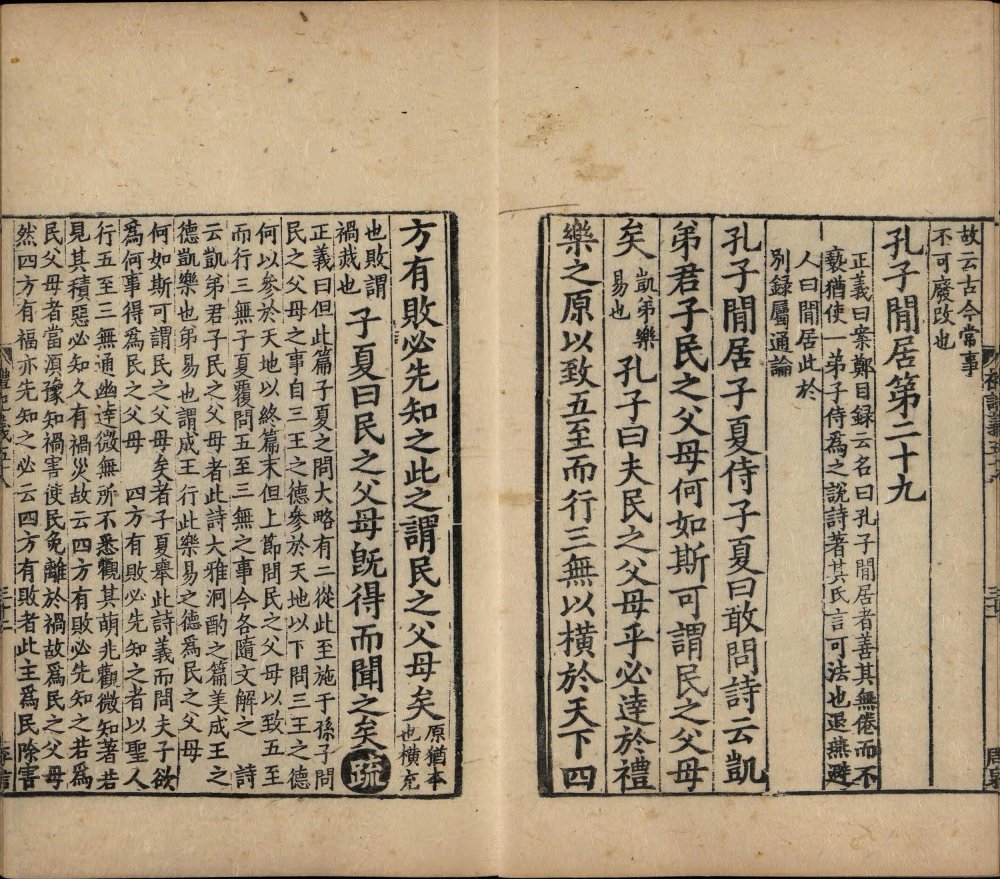 故云古今常事
不可廢改也
孔子閒居第二十九
正義曰案鄭目録云名曰孔子閒居者善其無倦而不
䙝猶使一弟子侍為之說詩著其氏言可法也退燕避
人曰閒居此於
別録屬通論
孔子閒居子夏侍子夏曰敢問詩云凱
弟君子民之父母何如斯可謂民之父母
矣凱弟樂易也孔子曰夫民之父母乎必達於禮
樂之原以致五至而行三無以橫於天下四
方有敗必先知之此之謂民之父母矣原猶本也橫充
也敗謂禍烖也子夏曰民之父母旣得而聞之矣疏
正義曰但此篇子夏之問大略有二從此至施于孫子問
民之父母之事自三王之德參於天地以下問三王之德
何以參於天地以終篇末但上節問民之父母以致五至
而行三無子夏覆問五至三無之事今各隨文解之 詩
云凱弟君子民之父母者此詩大雅泂酌之篇美成王之
德凱樂也弟易也謂成王行此樂易之德爲民之父母
何如斯可謂民之父母矣者子夏舉此詩義而問夫子欲
爲何事得爲民之父母 四方有敗必先知之者以聖人
行五至三無通幽達微無所不悉觀其萌兆觀微知著若
見其積惡必知久有禍災故云四方有敗必先知之若爲
民父母者當湏豫知禍害使民免離於禍故爲民之父母
然四方有福亦先知之必云四方有敗者此主爲民除害